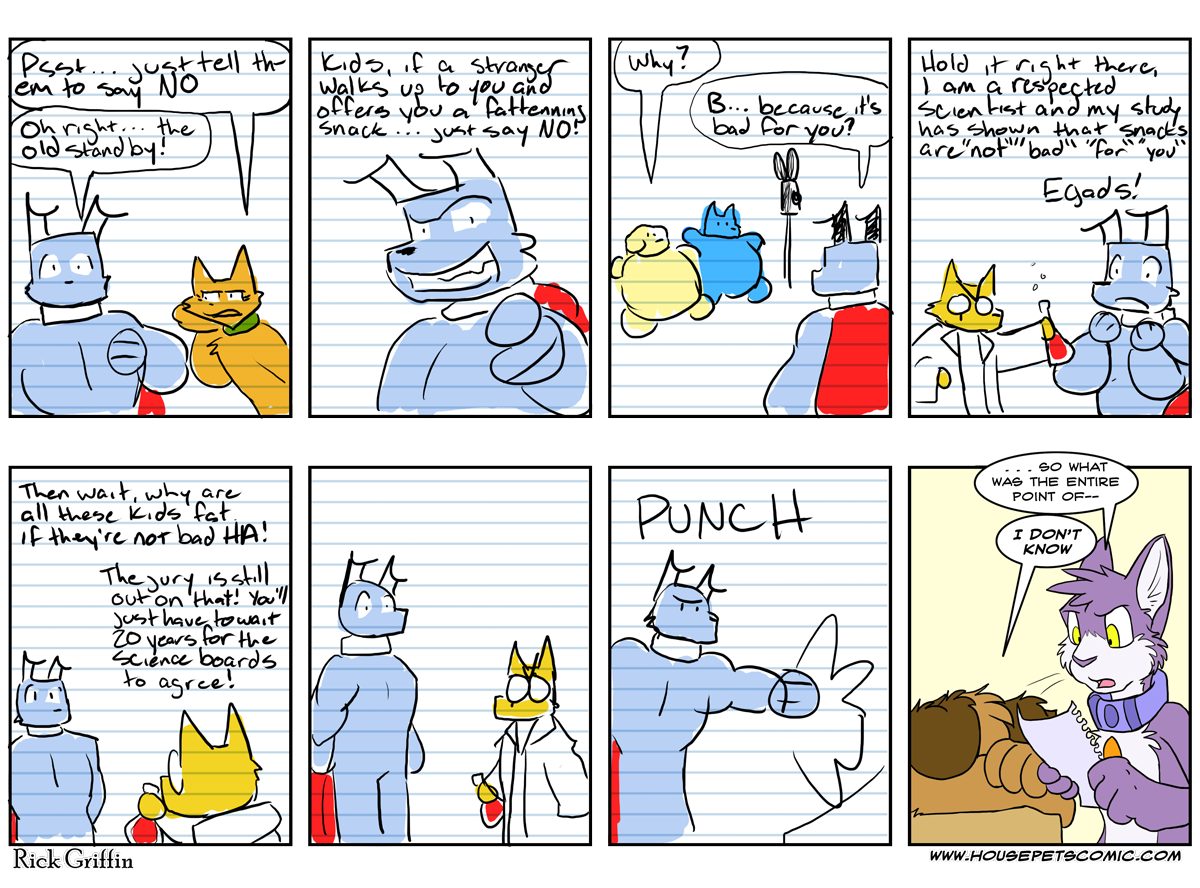 Psst... just tell th-
em to say NO
Oh right... the
old standby!
Kids, if a stranger
walks up to you and
offers you a fattenning
snack... just say NO!
Why?
B... because it's
bad for you?
Hold it right there,
I am a respected
scientist and my study
has shown that snacks
are "not" "bad" "for" "you"
Egads!
Then wait, why are
all these kids fat
if they're not bad HA!
The jury is still
out on that! You'll
just have to wait
20 years for the
science boards
to agree!
PUNCH
... SO WHAT
WAS THE ENTIRE
POINT OF--
I DON'T
KNOW
Rick Griffin
WWW.HOUSEPETSCOMIC.COM